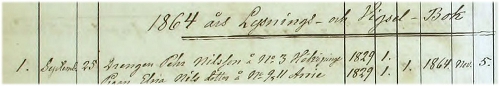 1864 års Lysnings- och Vigsel-Bok
1. Septemb. 25 Drengen Pehr Nilsson å No 3 1829 1. 1. 1864 Nov. 5.
Pigan Elna Nils dotter å No 9,11 Arrie 1829 1.